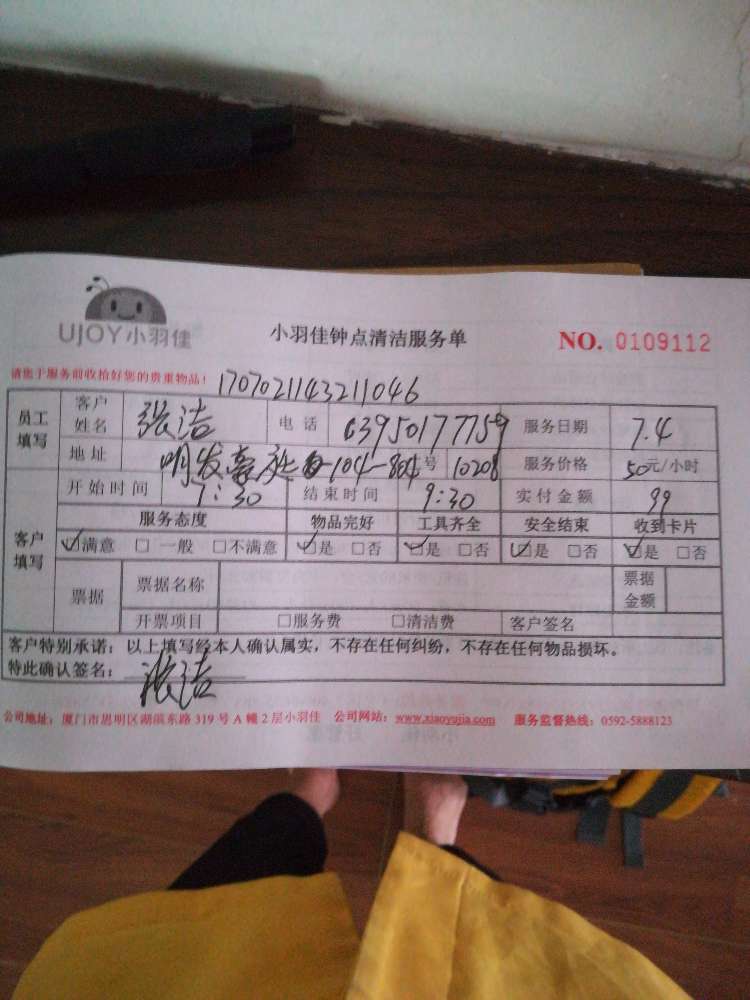 UJOY小羽佳
小羽佳钟点清洁服务单
NO. 0109112
请您于服务前收拾好您的贵重物品！ 1707021143211046
员工填写 客户姓名 张洁 电话 63950177759 服务日期 7.4
地址 明发豪庭 104-804号 10208 服务价格 50元/小时
客户填写 开始时间 7:30 结束时间 9:30 实付金额 99
服务态度 物品完好 工具齐全 安全结束 收到卡片
☑满意 □一般 □不满意 ☑是 □否 ☑是 □否 ☑是 □否 ☑是 □否
票据 票据名称 票据金额
开票项目 □服务费 □清洁费 客户签名
客户特别承诺：以上填写经本人确认属实，不存在任何纠纷，不存在任何物品损坏。
特此确认签名： 张洁
公司地址：厦门市思明区湖滨东路 319 号 A 幢 2 层小羽佳 公司网站：www.xiaoyujia.com 服务监督热线：0592-5888123